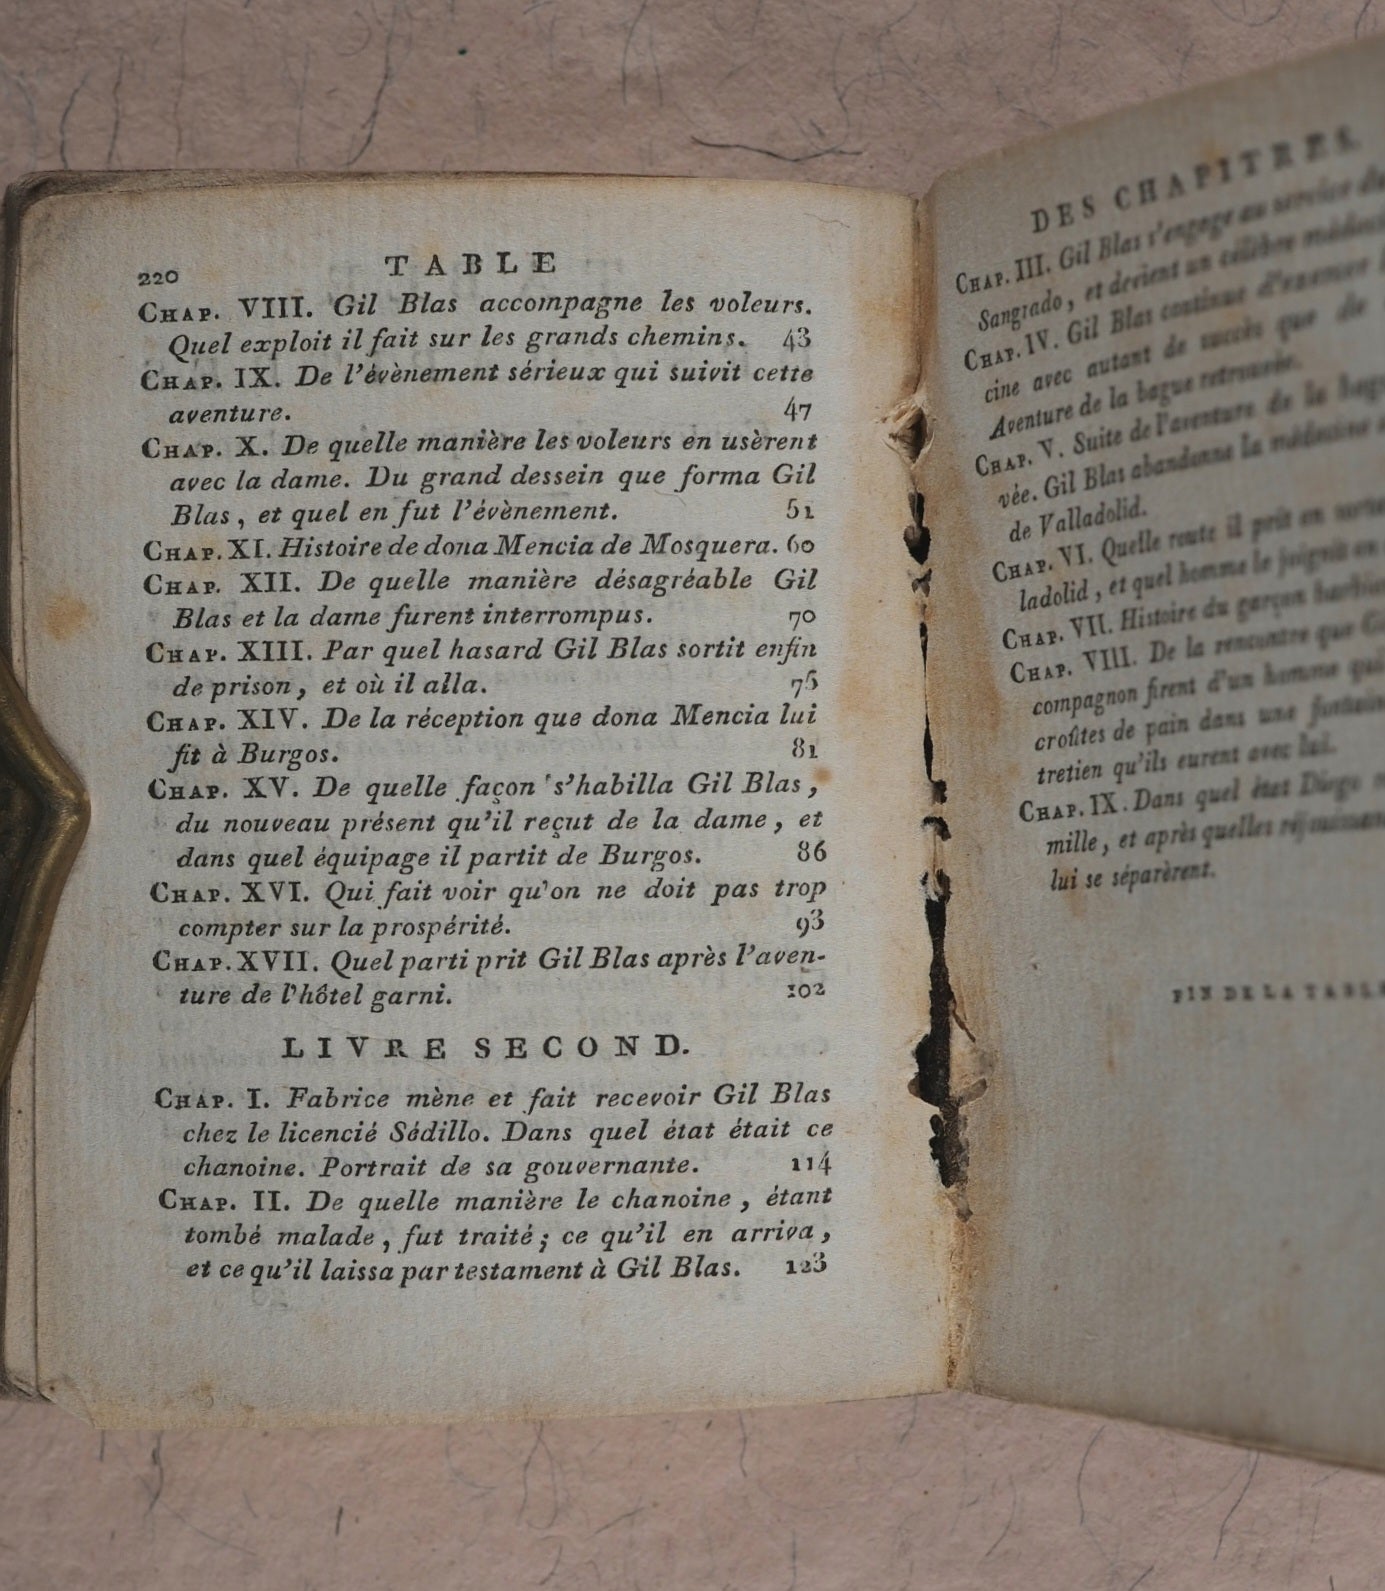 220
TABLE
CHAP. VIII. Gil Blas accompagne les voleurs.
Quel exploit il fait sur les grands chemins. 43
CHAP. IX. De l'évènement sérieux qui suivit cette
aventure. 47
CHAP. X. De quelle manière les voleurs en usèrent
avec la dame. Du grand dessein que forma Gil
Blas, et quel en fut l'évènement. 51
CHAP. XI. Histoire de dona Mencia de Mosquera. 60
CHAP. XII. De quelle manière désagréable Gil
Blas et la dame furent interrompus. 70
CHAP. XIII. Par quel hasard Gil Blas sortit enfin
de prison, et où il alla. 75
CHAP. XIV. De la réception que dona Mencia lui
fit à Burgos. 81
CHAP. XV. De quelle façon s'habilla Gil Blas,
du nouveau présent qu'il reçut de la dame, et
dans quel équipage il partit de Burgos. 86
CHAP. XVI. Qui fait voir qu'on ne doit pas trop
compter sur la prospérité. 93
CHAP. XVII. Quel parti prit Gil Blas après l'aven-
ture de l'hôtel garni. 102
LIVRE SECOND.
CHAP. I. Fabrice mène et fait recevoir Gil Blas
chez le licencié Sédillo. Dans quel état était ce
chanoine. Portrait de sa gouvernante. 114
CHAP. II. De quelle manière le chanoine, étant
tombé malade, fut traité; ce qu'il en arriva,
et ce qu'il laissa par testament à Gil Blas. 123
DES CHAPITRES.
CHAP. III. Gil Blas s'engage au service du
Sangrado, et devient un célèbre
CHAP. IV. Gil Blas continue d'exercer
cine avec autant de succès que de
Aventure de la bague retrouvée.
CHAP. V. Suite de l'aventure de la
vée. Gil Blas abandonne la médecine
de Valladolid.
CHAP. VI. Quelle route il prit en
ladolid, et quel homme le joignit en
CHAP. VII. Histoire du garçon
CHAP. VIII. De la rencontre que
compagnon firent d'un homme qui
croûtes de pain dans une
tretien qu'ils eurent avec lui.
CHAP. IX. Dans quel état Diego
mille, et après quelles
lui se séparèrent.
FIN DE LA TABLE